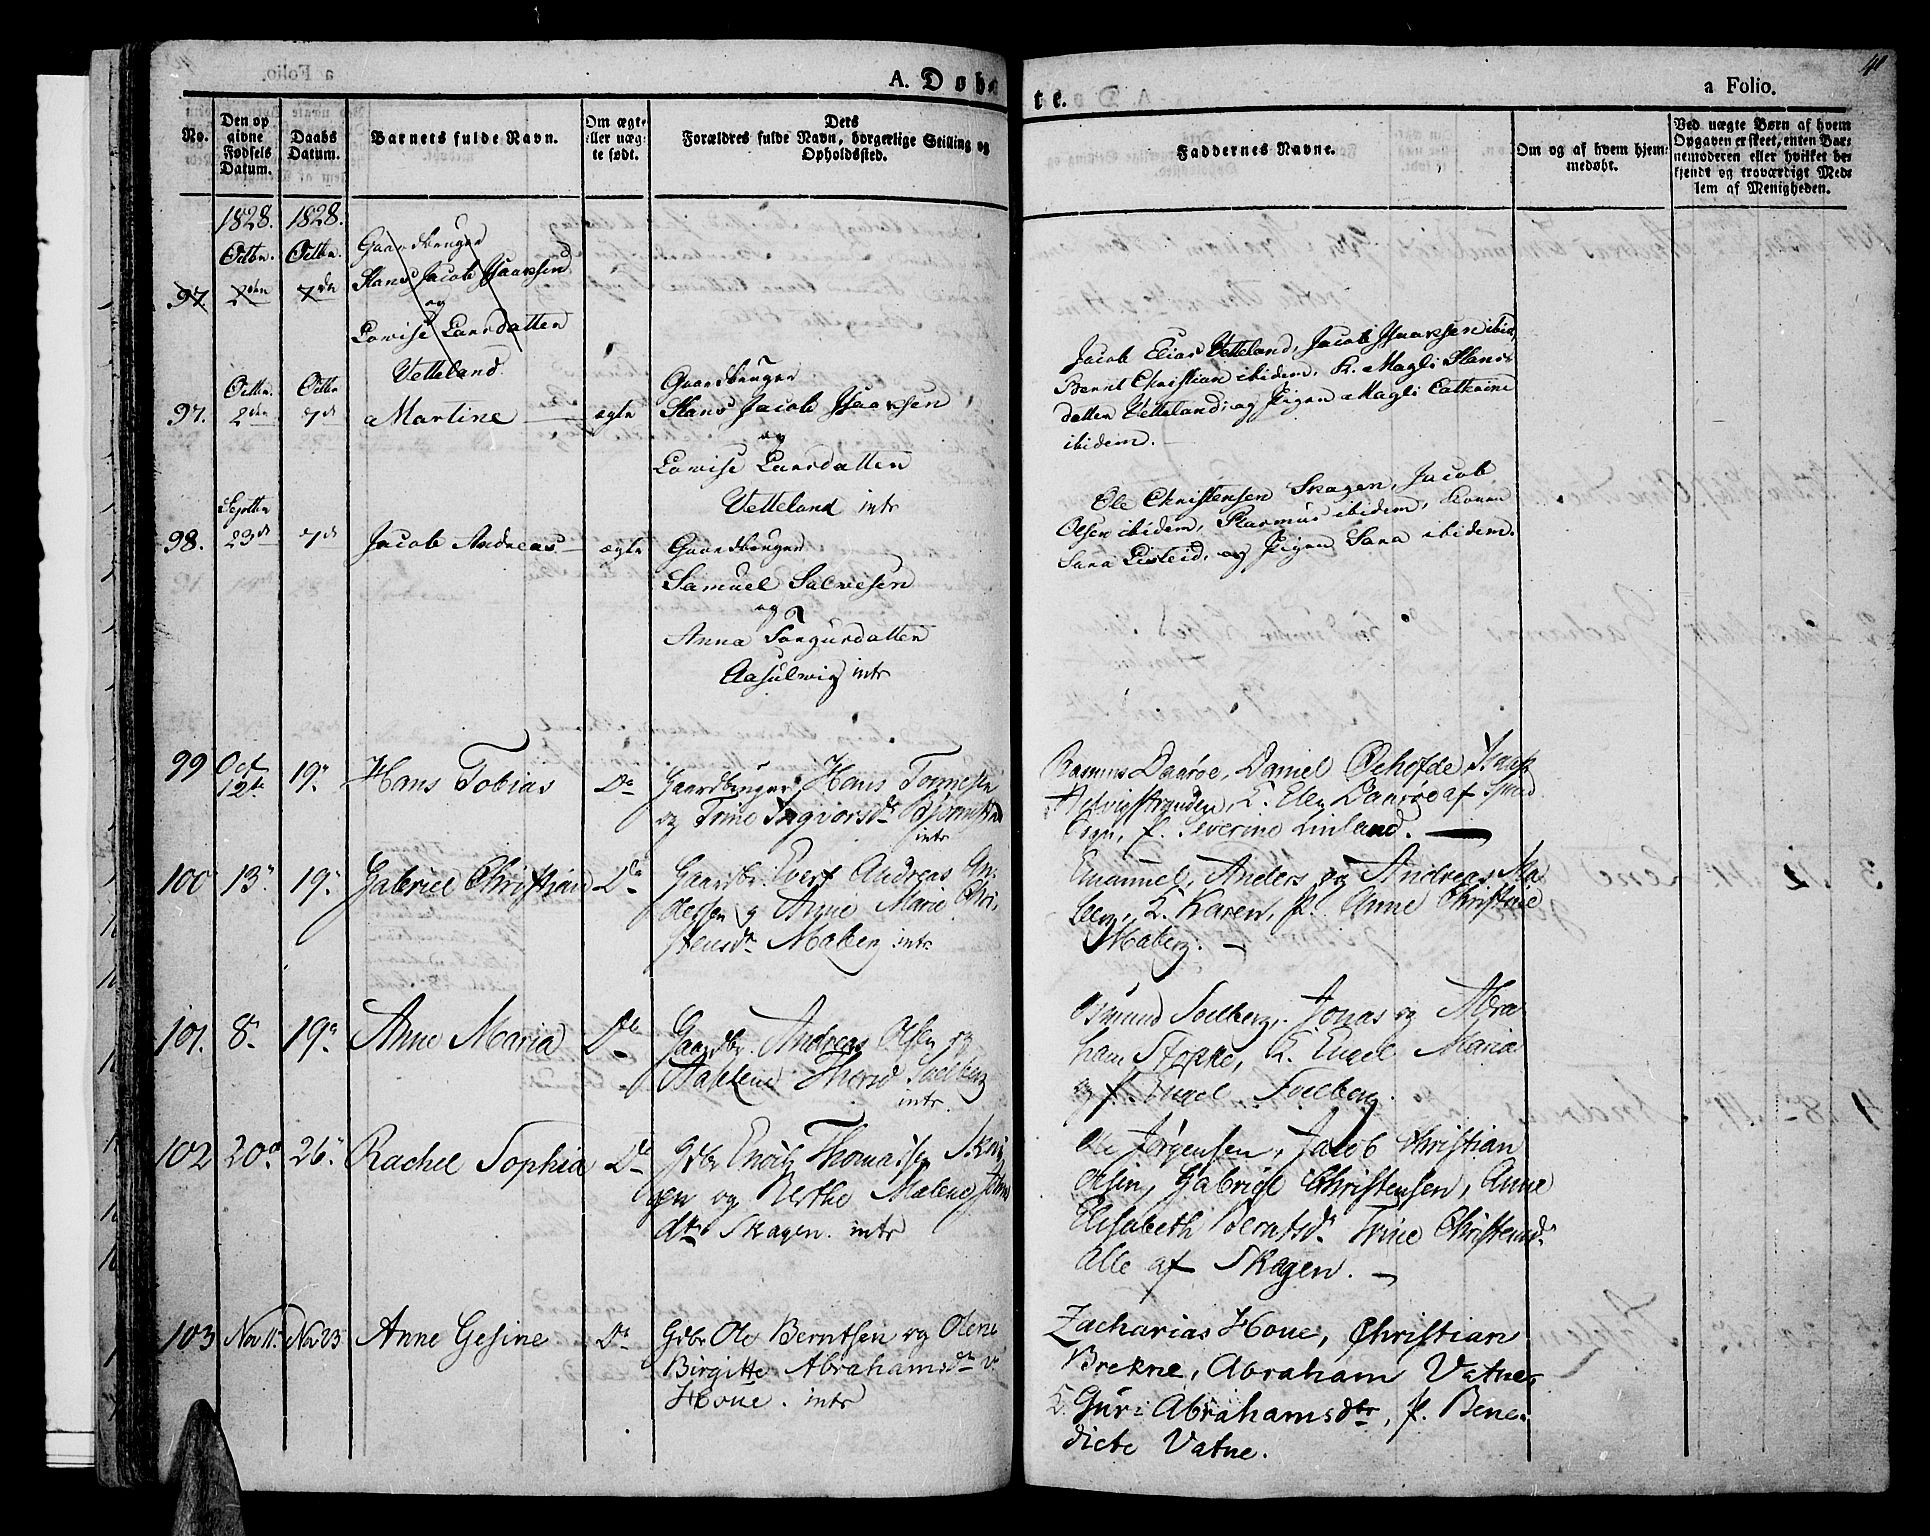 A. Døbte.
a Folio.
41
No.
Den op givne Fødsels Datum.
Daabs Datum.
Barnets fulde Navn.
Om ægte eller uægte født.
Dets Forældres fulde Navn, borgerlige Stilling og Opholdssted.
Faddernes Navne.
Om og af hvem hjemmedøbt.
Ved uægte Børn af hvem Opgaven er skeet, enten Barnemoderen eller hvilket bekjendt og troværdigt Medlem af Menigheden.
1828. 1828.
Octbr. Octbr. Gaardbruger
97. 2den 7de Hans Jacob Isaaksen
og
Lovise Larsdatter
Vetteland.
Octbr. Octbr Gaardbruger
97. 2den 7de Martine ægte Hans Jacob Isaaksen
og
Lovise Larsdatter
Vetteland intr
Jacob Elias Vetteland, Jacob Isaaksen ibid,
Bernt Christian ibidem, K. Magli Hans-
datter Vetteland, og Pigen Magli Cathrine
ibidem.
Septbr
98. 23de 7de Jacob Andreas ægte Gaardbruger
Samuel Salvesen
og
Anna Torgursdatter
Aasulvig intr
Ole Christensen Skagen, Jacob
Olsen ibidem, Rasmus ibidem, Konen
Sara Lisleid, og Pigen Sara ibidem.
99 Oct 12te 19. Hans Tobias Do Gaardbruger Hans Tønnesen
og Trine Ingvorsdr
intr
Rasmus Daarøe, Daniel Ochofde, Isaak
K. Elen Daarøe af
Sogn, P. Severine Linland.
100 13. 19. Gabriel Christian Do Gaardbr. Evert Andreas An-
dersen og Anne Marie Chri-
stensdr Maberg intr.
Emanuel, Anders og Andreas Ma-
berg, K. Karen, P. Anne Christine
Maberg.
101. 8. 19. Anne Maria Do Gaardbr. Andreas Olsen og
Solberg
intr.
Osmund Soelberg, Jonas og Abra-
ham Stokke, K. Engel Maria
og P. Engel Soelberg.
102 20de 26. Rachel Sophia Do Gdbr Enoch Thomassen Ska-
gen og Berthe Malene
dtr Skagen. intr
Ole Jørgensen, Jacob Christian
Olsen, Gabriel Christensen, Anne
Elisabeth Berntsdr Trine Christensdr
alle af Skagen.
103 Nov 11. Nov 23 Anne Gesine Do Gdbr Ole Berntsen og Olene
Birgitte Abrahamsdr
Houe. intr
Zacharias Houe, Christian
Brekne, Abraham Vatne,
K. Guri Abrahamsdtr, P. Bene-
dicte Vatne.